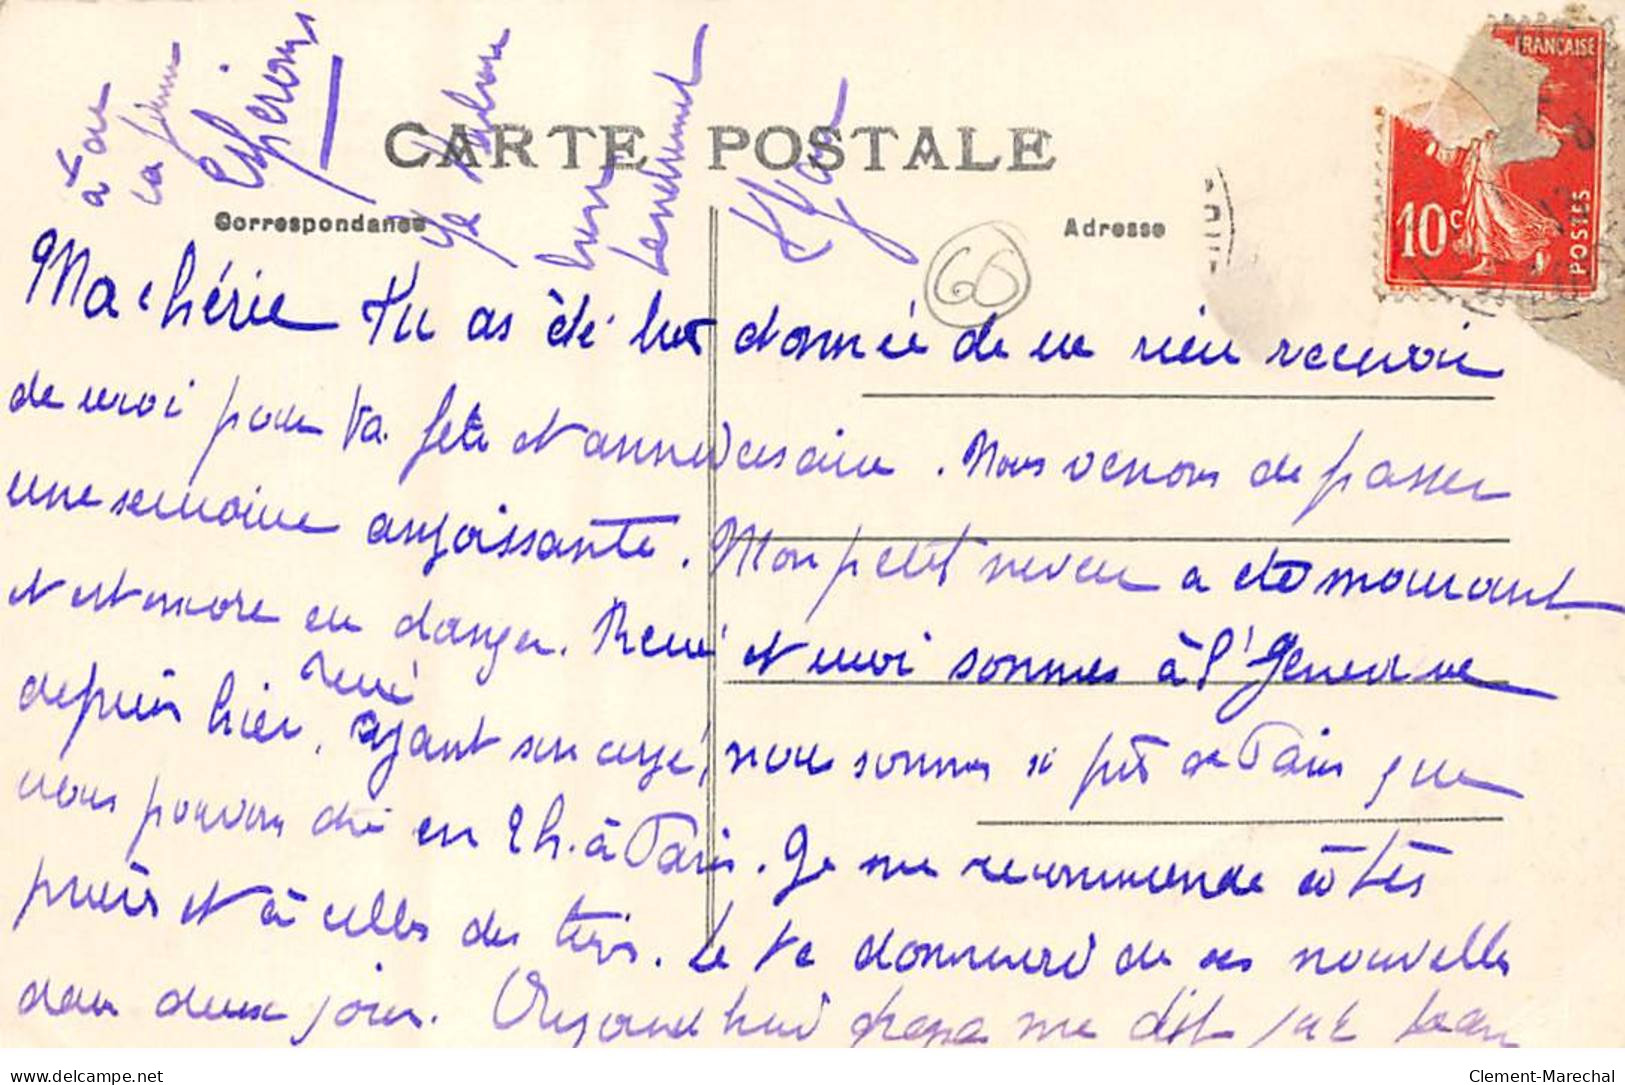 à ton
Espérons
Je
tendrement
CARTE POSTALE
Correspondance
Adresse
FRANÇAISE
10c
POSTES
60
Ma chérie Tu as été donnée de ne rien recevoir
de moi pour ta fête et anniversaire. Nous venons de passer
une semaine angoissante. Mon petit neveu a été mourant
et est encore en danger. René et moi sommes à l'
René
depuis hier, ayant son congé, nous sommes si près de Paris que
nous pouvons être en 2 h. à Paris. Je me recommande à tes
prières et à celles des tiens. Je te donnerai de ses nouvelles
dans deux jours. Aujourd'hui papa me dit que Jean
delcampe.net
Clement-Marechal